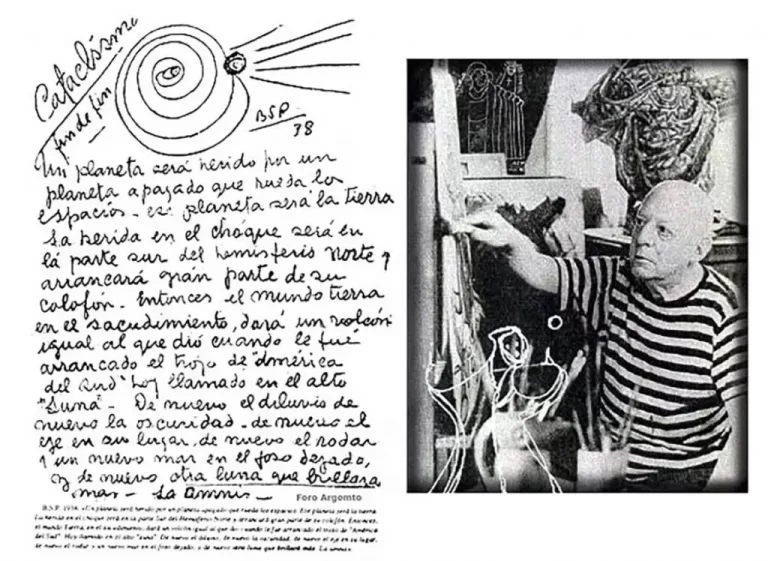 Cataclismo
fin de fin
BSP
38
Un planeta será herido por un
planeta apagado que rueda los
espacios - ese planeta será la tierra
La herida en el choque será en
la parte sur del hemisferio Norte y
arrancará gran parte de su
colofón. Entonces el mundo tierra
en el sacudimiento, dará un volcón
igual al que dió cuando le fué
arrancado el trozo de "América
del Sud" hoy llamado en el alto
"Luna" - De nuevo el diluvio de
nuevo la oscuridad - de nuevo el
eje en su lugar, de nuevo el rodar
y un nuevo mar en el foso dejado,
y de nuevo otra luna que brillará
mas - La
Foro Argemto
B.S.P. 1938. «Un planeta será herido por un planeta apagado que rueda los espacios. Ese planeta será la tierra.
La herida en el choque será en la parte Sur del Hemisferio Norte y arrancará gran parte de su colofón. Entonces,
el mundo Tierra, en el sacudimiento, dará un volcón igual al que dio cuando le fue arrancado el trozo de "América
del Sud". Hoy llamado en el alto "Luna". De nuevo el diluvio, de nuevo la oscuridad, de nuevo el eje en su lugar,
de nuevo el rodar y un nuevo mar en el foso dejado, y de nuevo otra luna que brillará más. La